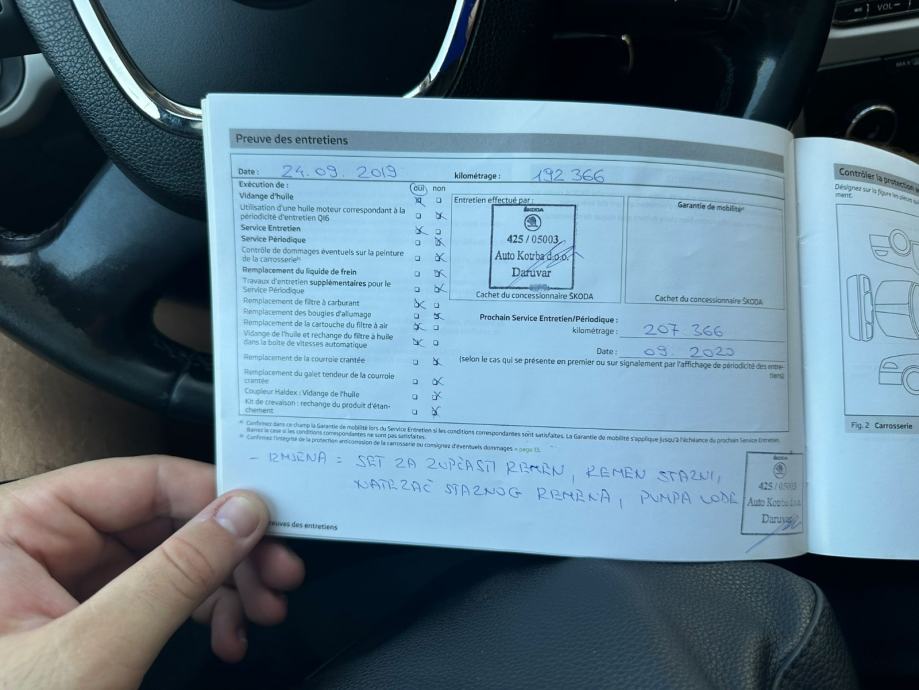 Preuve des entretiens
Date : 24.09.2019
kilométrage : 192 366
Exécution de :
oui non
Vidange d'huile
Utilisation d'une huile moteur correspondant à la
périodicité d'entretien QI6
Service Entretien
Service Périodique
Contrôle de dommages éventuels sur la peinture
de la carrosserie
Remplacement du liquide de frein
Travaux d'entretien supplémentaires pour le
Service Périodique
Remplacement de filtre à carburant
Remplacement des bougies d'allumage
Remplacement de la cartouche du filtre à air
Vidange de l'huile et rechange du filtre à huile
dans la boîte de vitesses automatique
Remplacement de la courroie crantée
Remplacement du galet tendeur de la courroie
crantée
Coupleur Haldex : Vidange de l'huile
Kit de crevaison : rechange du produit d'étan-
chement
Entretien effectué par :
ŠKODA
425 / 05003
Auto Kotrba d.o.o.
Daruvar
Cachet du concessionnaire ŠKODA
Garantie de mobilité
Cachet du concessionnaire ŠKODA
Prochain Service Entretien/Périodique :
kilométrage : 207 366
Date : 09. 2020
(selon le cas qui se présente en premier ou sur signalement par l'affichage de périodicité des entre-
tiens)
a) Confirmez dans ce champ la Garantie de mobilité lors du Service Entretien si les conditions correspondantes sont satisfaites. La Garantie de mobilité s'applique jusqu'à l'échéance du prochain Service Entretien.
Barrez la case si les conditions correspondantes ne sont pas satisfaites.
b) Confirmez l'intégrité de la protection anticorrosion de la carrosserie ou consignez d'éventuels dommages » page 13.
- IZMJENA = SET ZA ZUPČASTI REMEN, REMEN STAZNI,
NATEZAČ STAZNOG REMENA, PUMPA VODE
425 / 05003
Auto Kotrba d.o.o.
Daruvar
reuves des entretiens
Contrôler la protection
Désignez sur la figure les
ment.
Fig. 2 Carrosserie
VOL